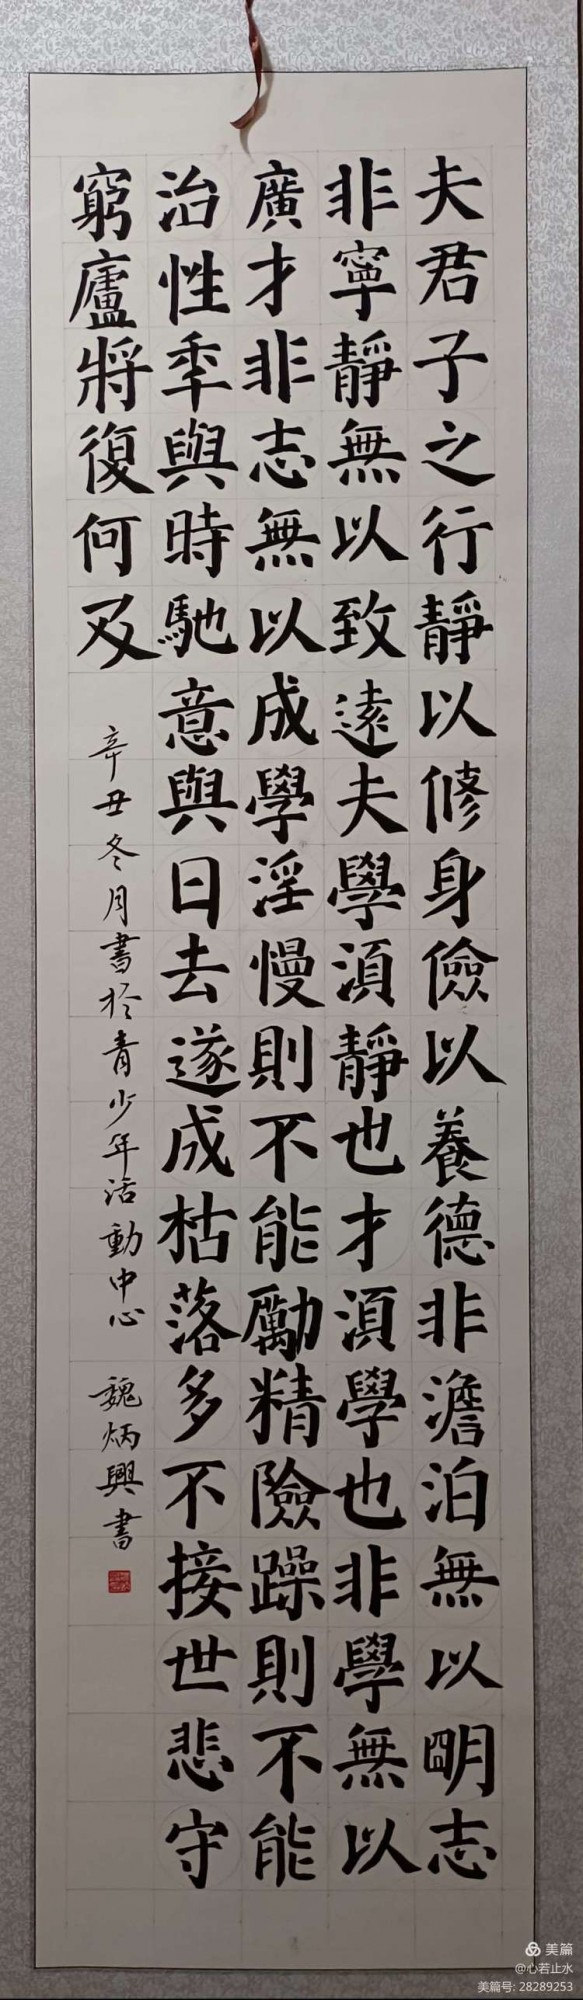 夫君子之行靜以修身儉以養德非澹泊無以明志
非寧靜無以致遠夫學須靜也才須學也非學無以
廣才非志無以成學淫慢則不能勵精險躁則不能
治性年與時馳意與日去遂成枯落多不接世悲守
窮廬將復何及
辛丑冬月書於青少年活動中心 魏炳興書
美篇
@心若止水
美篇号: 28289253